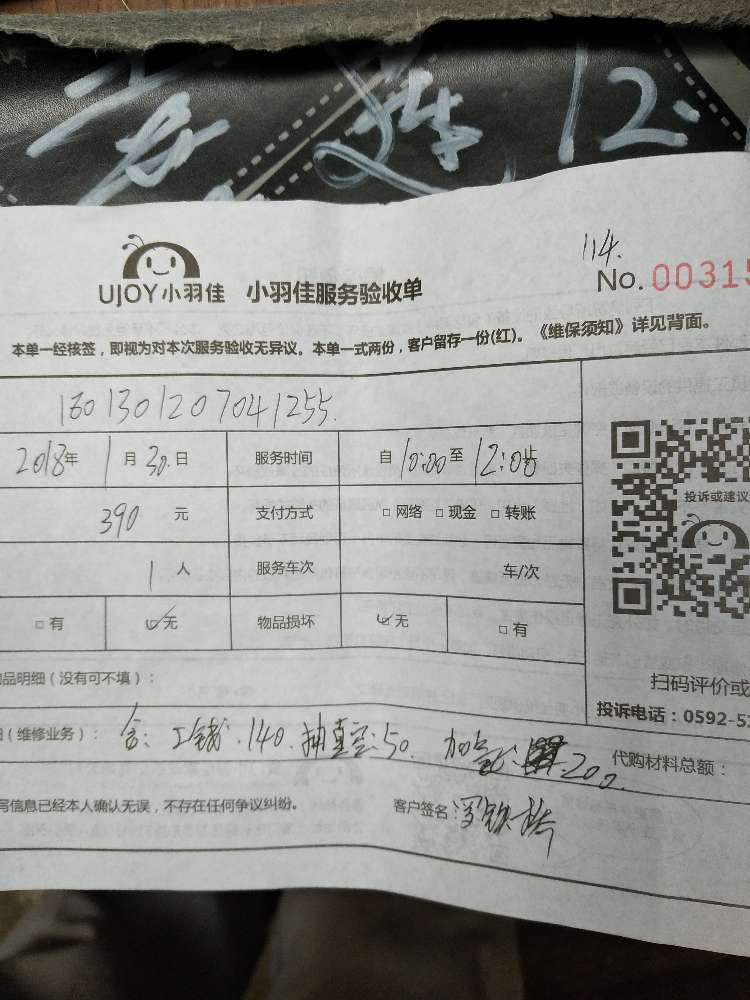 12:
114.
UJOY小羽佳 小羽佳服务验收单 No.00315
本单一经核签，即视为对本次服务验收无异议。本单一式两份，客户留存一份(红)。《维保须知》详见背面。
160130120704​1255.
2018年 1月30.日 服务时间 自10:00至12:00
390元 支付方式 □网络 □现金 □转账
投诉或建议
1人 服务车次 车/次
□有 ☑无 物品损坏 ☑无 □有
品明细（没有可不填）：
扫码评价或
投诉电话：0592-5
（维修业务）：含：工钱：140、抽真空：50、加氟：200. 代购材料总额：
写信息已经本人确认无误，不存在任何争议纠纷。 客户签名：